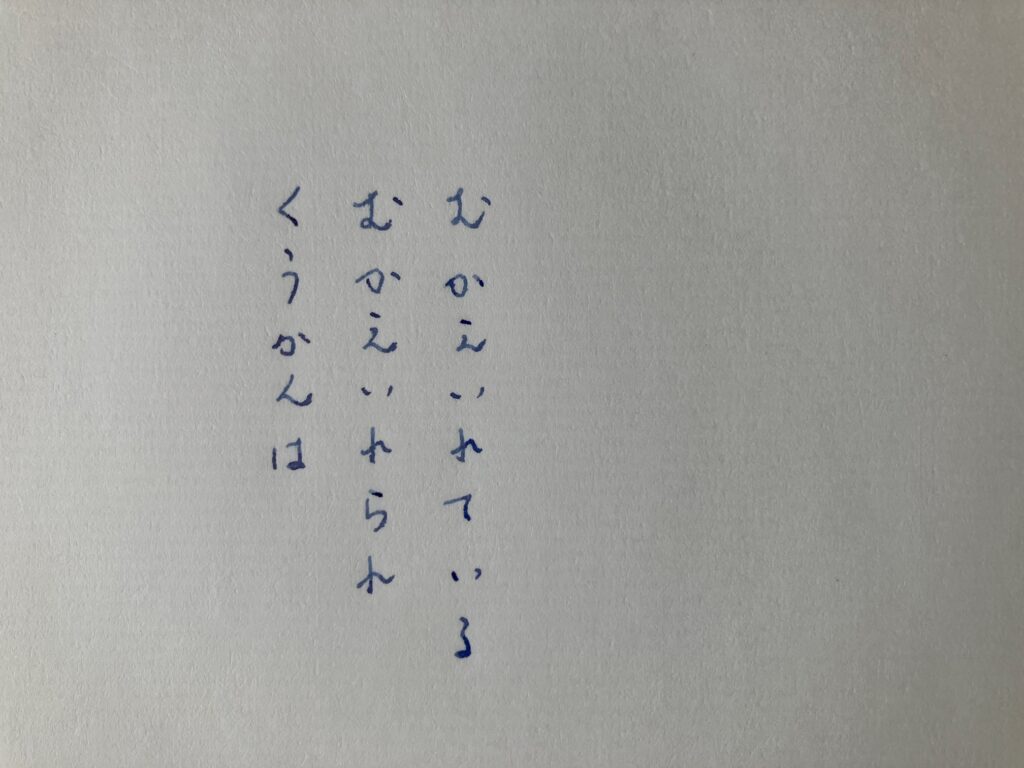 むかえいれている
むかえいれられ
くうかんは